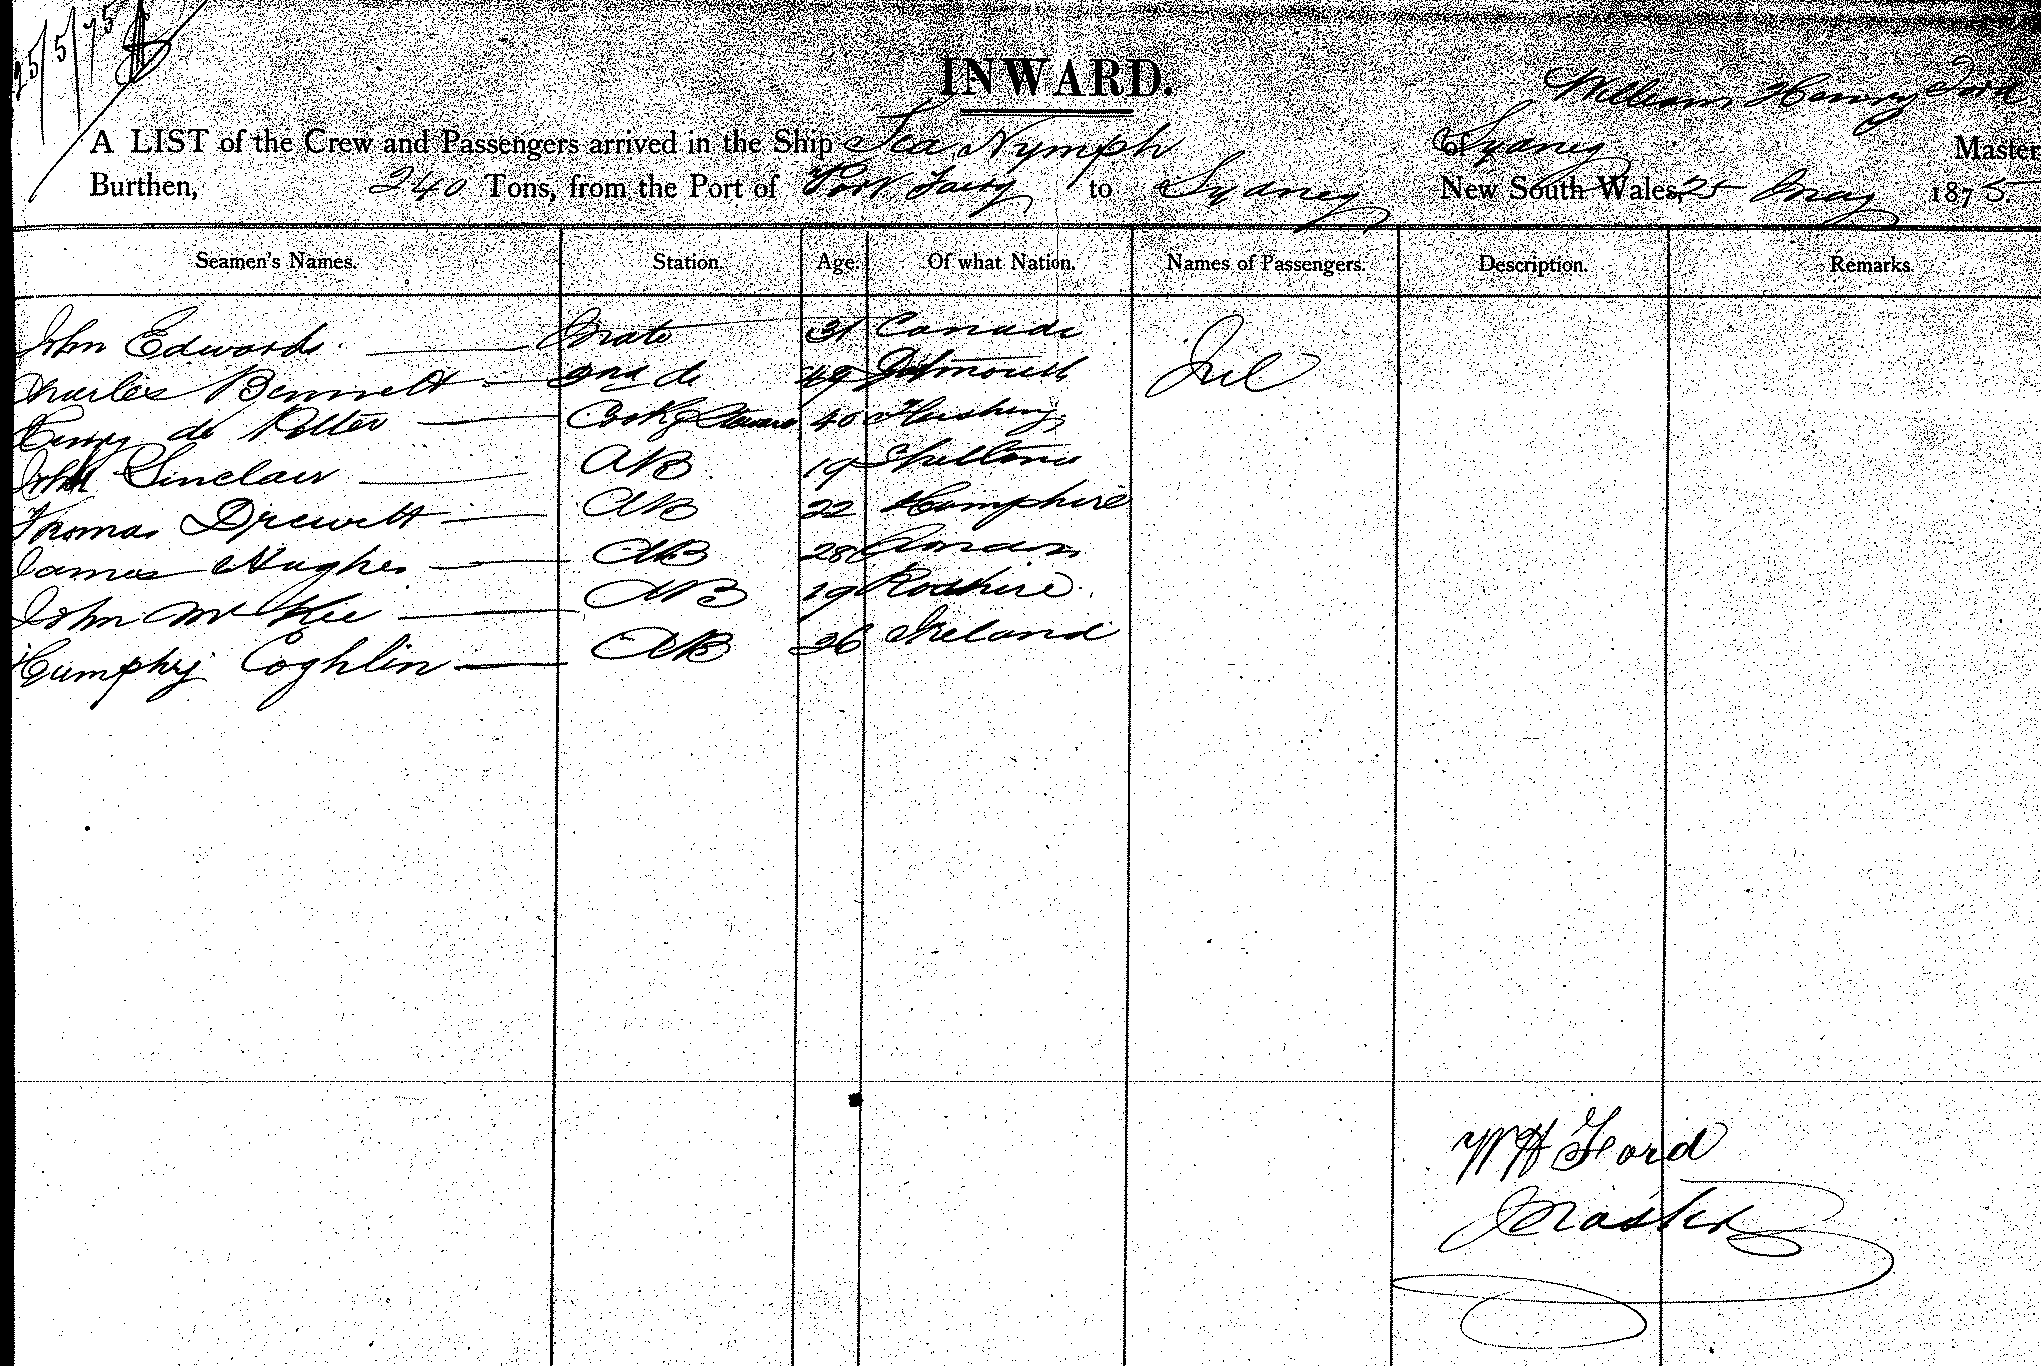 25/5/75
INWARD.
William Henry Ford
A LIST of the Crew and Passengers arrived in the Ship Sea Nymph of Sydney Master
Burthen, 240 Tons, from the Port of Port Fairy to Sydney New South Wales, 25 May 1875.
Seamen's Names. Station. Age. Of what Nation. Names of Passengers. Description. Remarks.
John Edwards Mate 31 Canada Nil
Charles Bennett 2nd do
Henry de Potter Cook & Steward 40 Flushing
John Sinclair AB 19
Thomas Drewett AB 22 Hampshire
James Hughes AB 28
John McKee AB 19 Rosshire
Humphy Coghlin AB 26 Ireland
WH Ford
Master